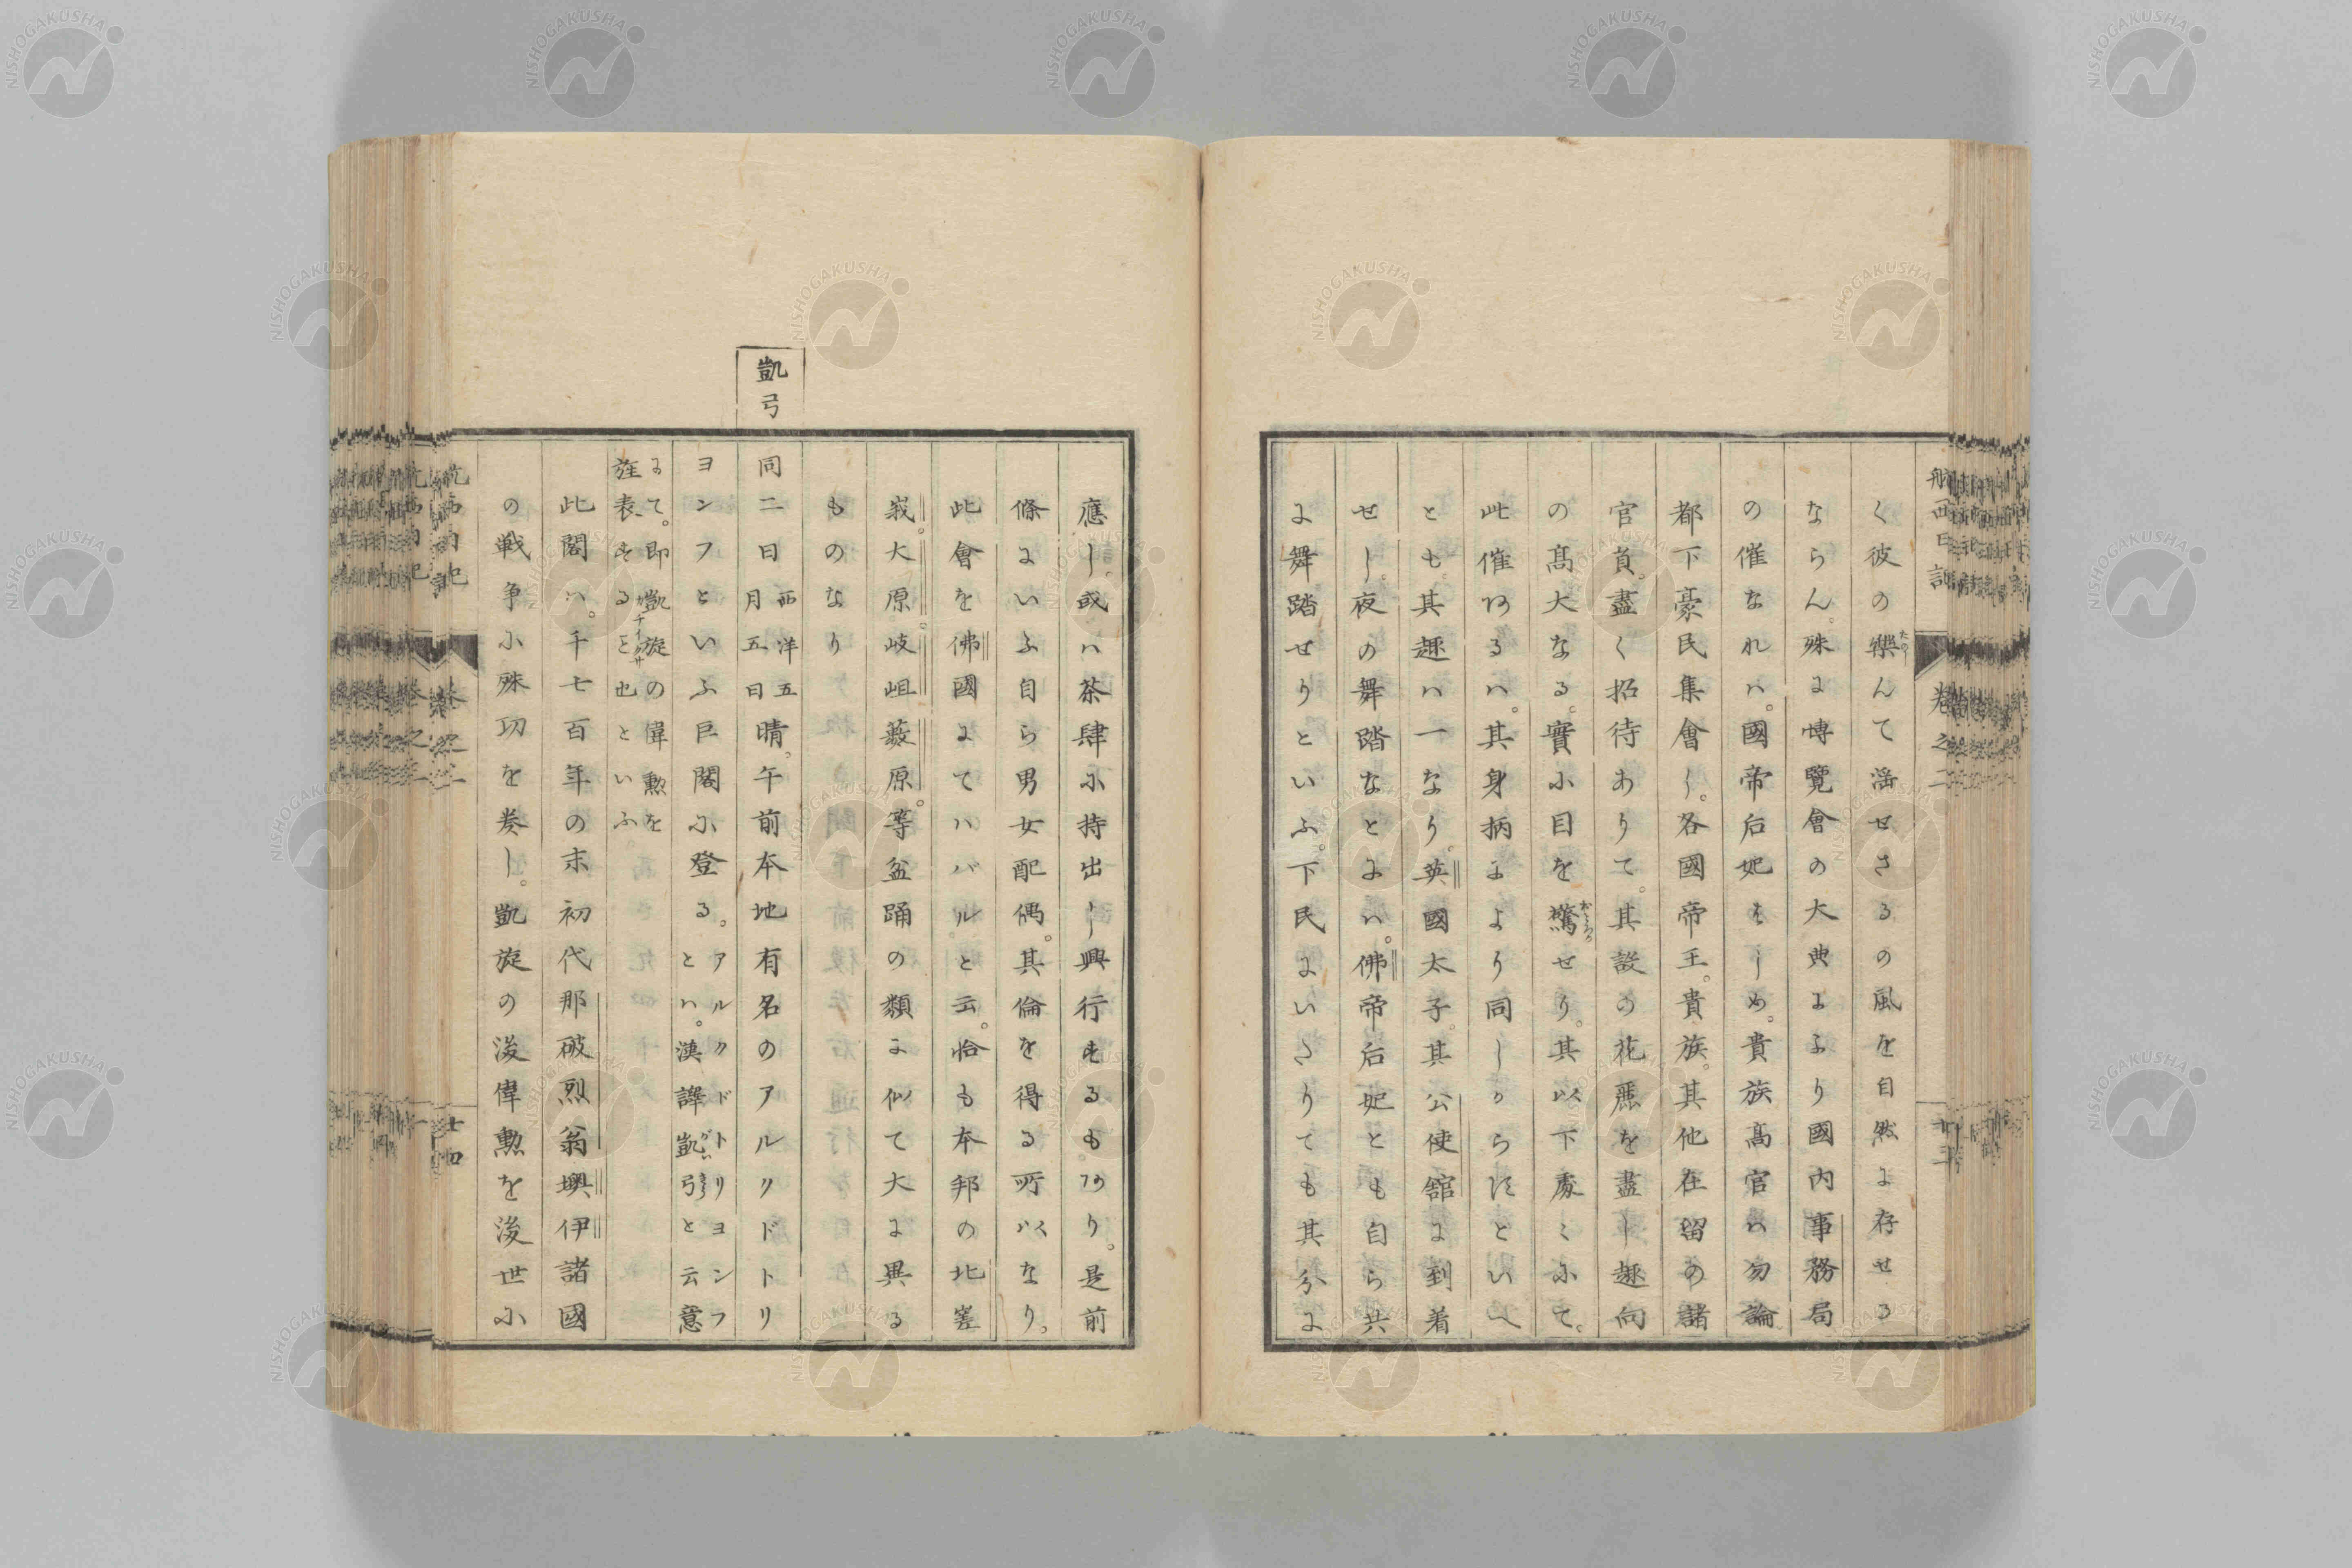 く彼の樂んて淫せさるの風を自然に存せる
ならん。殊に博覽會の大典により國内事務局
の催なれハ。國帝后妃をしめ。貴族高官ハ勿論
都下豪民集會し。各國帝王。貴族。其他在留の諸
官員。盡く招待ありて。其設の花麗を盡し趣向
の高大なる。實に目を驚せり。其以下處〻にて。
此催あるハ。其身柄により同しからすといへ
とも。其趣ハ一なり。英國太子。其公使舘に到着
せし。夜の舞踏なとにハ。佛帝后妃とも自ら共
に舞踏せりといふ。下民にいたりても其分に
應し。或ハ茶肆に持出し興行するもあり。是前
條にいふ自ら男女配偶。其倫を得る所以なり。
此會を佛國にてハバルと云。恰も本邦の北嵳
峩。大原。岐岨藪原。等盆踊の類に似て大に異る
ものなり
凱弓
同二日西洋五月五日晴。午前本地有名のアルクドトリ
ヨンフといふ巨閣に登る。アルクドトリヨンフとハ。漢譯凱弓と云意
にて。即凱旋の偉勲を旌表することと也といふ。
此閣ハ。千七百年の末初代那破烈翁墺伊諸國
の戦争に殊功を奏し。凱旋の後偉勲を後世に
航西日記
巻之二
十三
十四
NISHOGAKUSHA